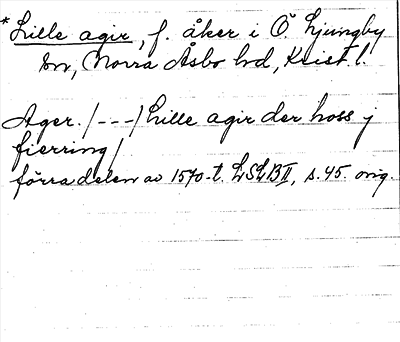 *Lille agir, f. åker i Ö Ljungby
sn, Norra Åsbo hd, Krist. l.
Ager. /---/ Lille agir der hoss j
fierring /
förra delen av 1570-t. LSLB II, s. 45. orig.